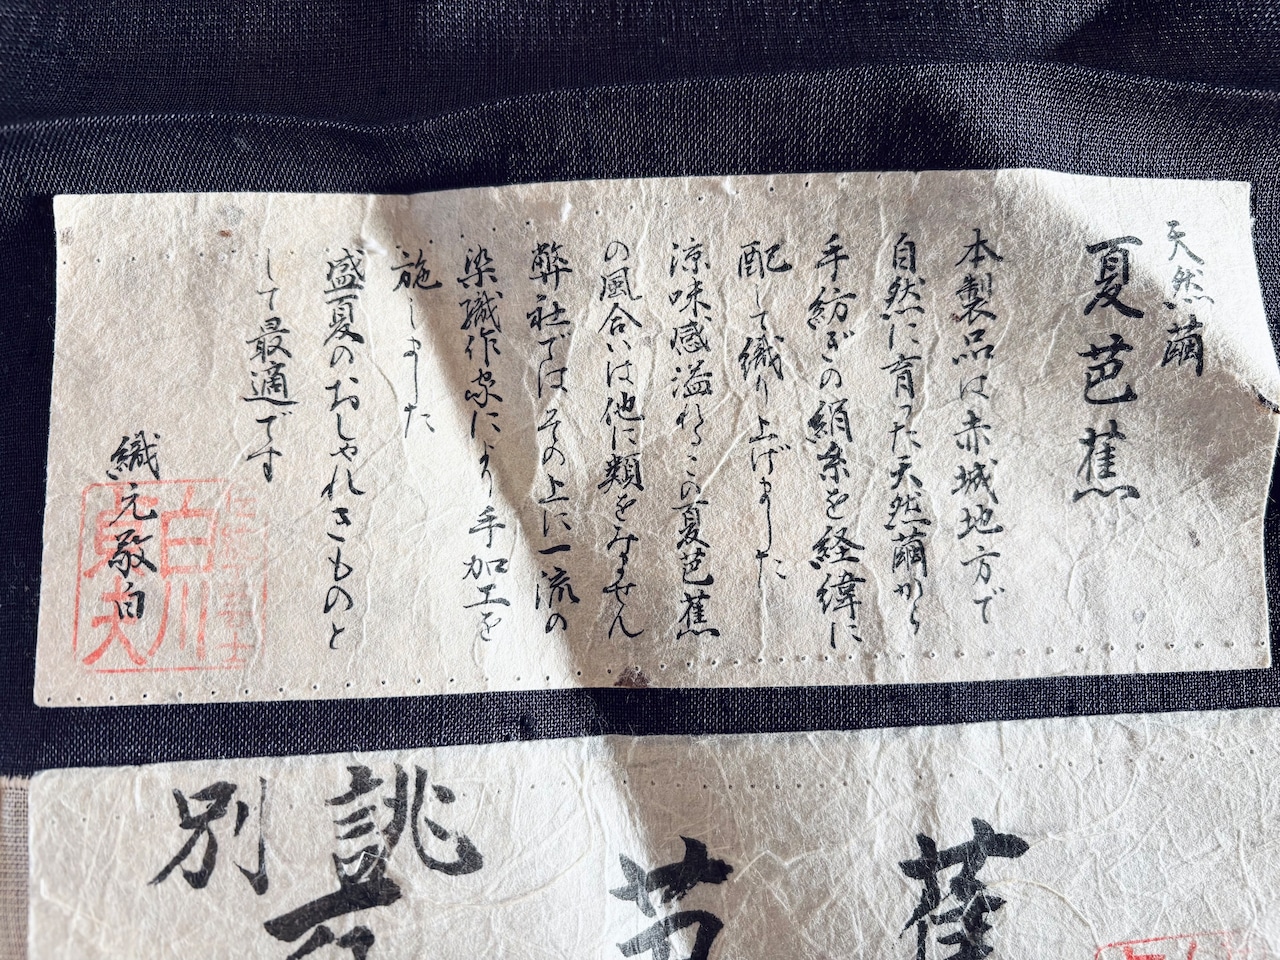 天然繭
夏芭蕉
本製品は赤城地方で
自然に育った天然繭から
手紡ぎの絹糸を経緯に
配して織り上げました
涼味感溢れるこの夏芭蕉
の風合いは他に類をみません
弊社ではその上に一流の
染織作家により手加工を
施しました
盛夏のおしゃれきものと
して最適です
織元敬白
白川
誂
別